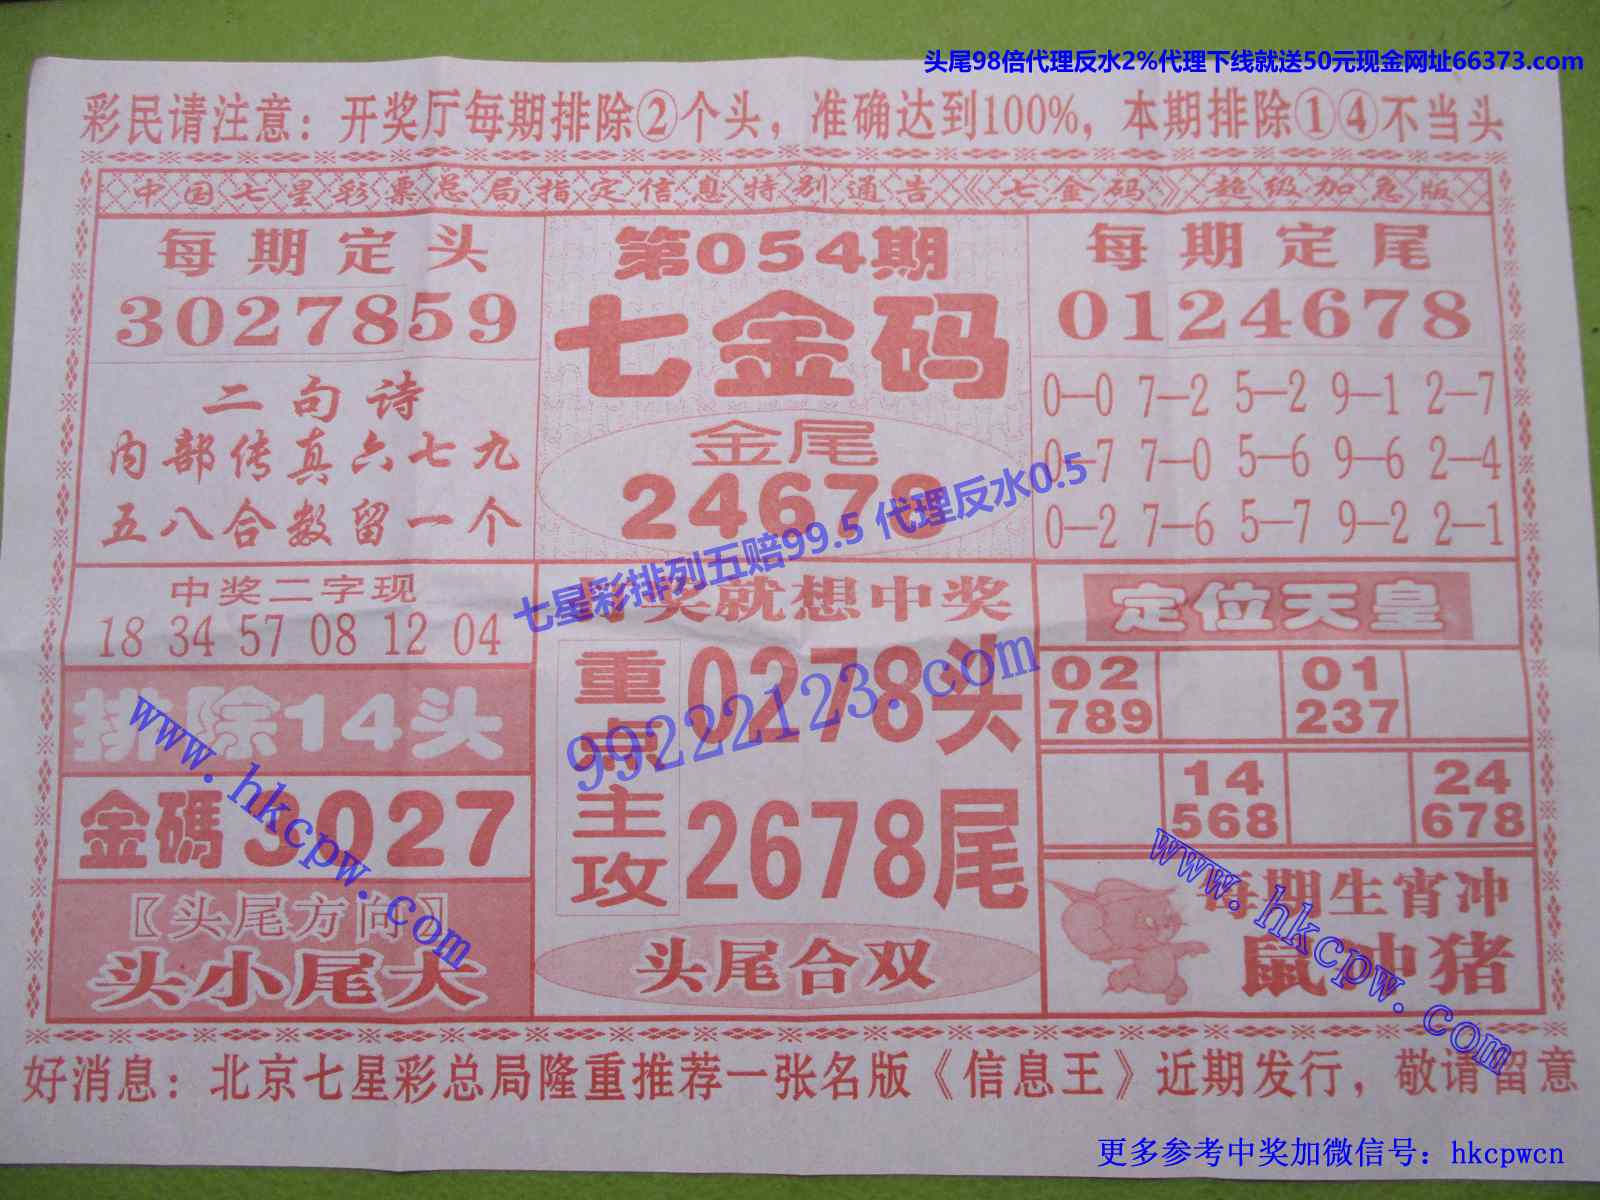 头尾98倍代理反水2%代理下线就送50元现金网址66373.com
彩民请注意：开奖厅每期排除②个头，准确达到100%，本期排除①④不当头
中国七星彩票总局指定信息特别通告《七金码》超级加急版
每期定头
3027859
二句诗
内部传真六七九
五八合数留一个
中奖二字现
18 34 57 08 12 04
排除14头
金碼3027
〖头尾方向〗
头小尾大
第054期
七金码
金尾
24678
七星彩排列五赔99.5 代理反水0.5
奖就想中奖
重点主攻
0278头
2678尾
99222123.com
头尾合双
每期定尾
0124678
0—0 7—2 5—2 9—1 2—7
0—7 7—0 5—6 9—6 2—4
0—2 7—6 5—7 9—2 2—1
定位天皇
02 01
789 237
14 24
568 678
每期生宵冲
鼠冲猪
www.hkcpw.com
www.hkcpw.com
好消息：北京七星彩总局隆重推荐一张名版《信息王》近期发行，敬请留意
更多参考中奖加微信号：hkcpwcn